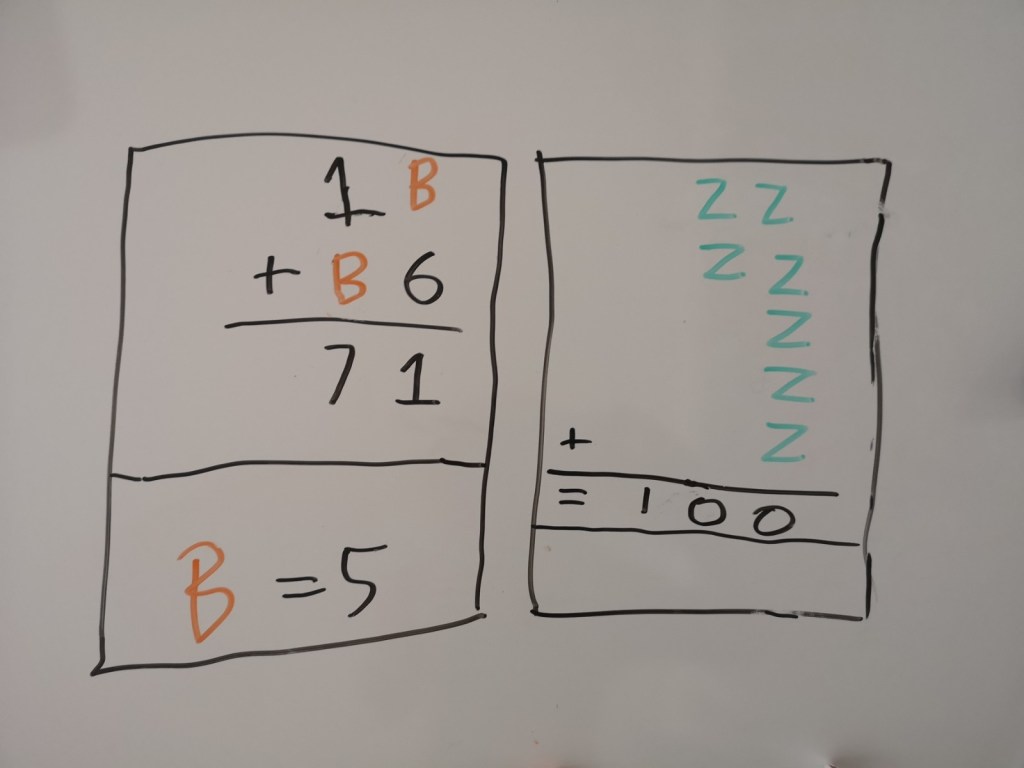 1 B
+ B 6
7 1
B = 5
Z Z
Z Z
Z
Z
+ Z
= 1 0 0